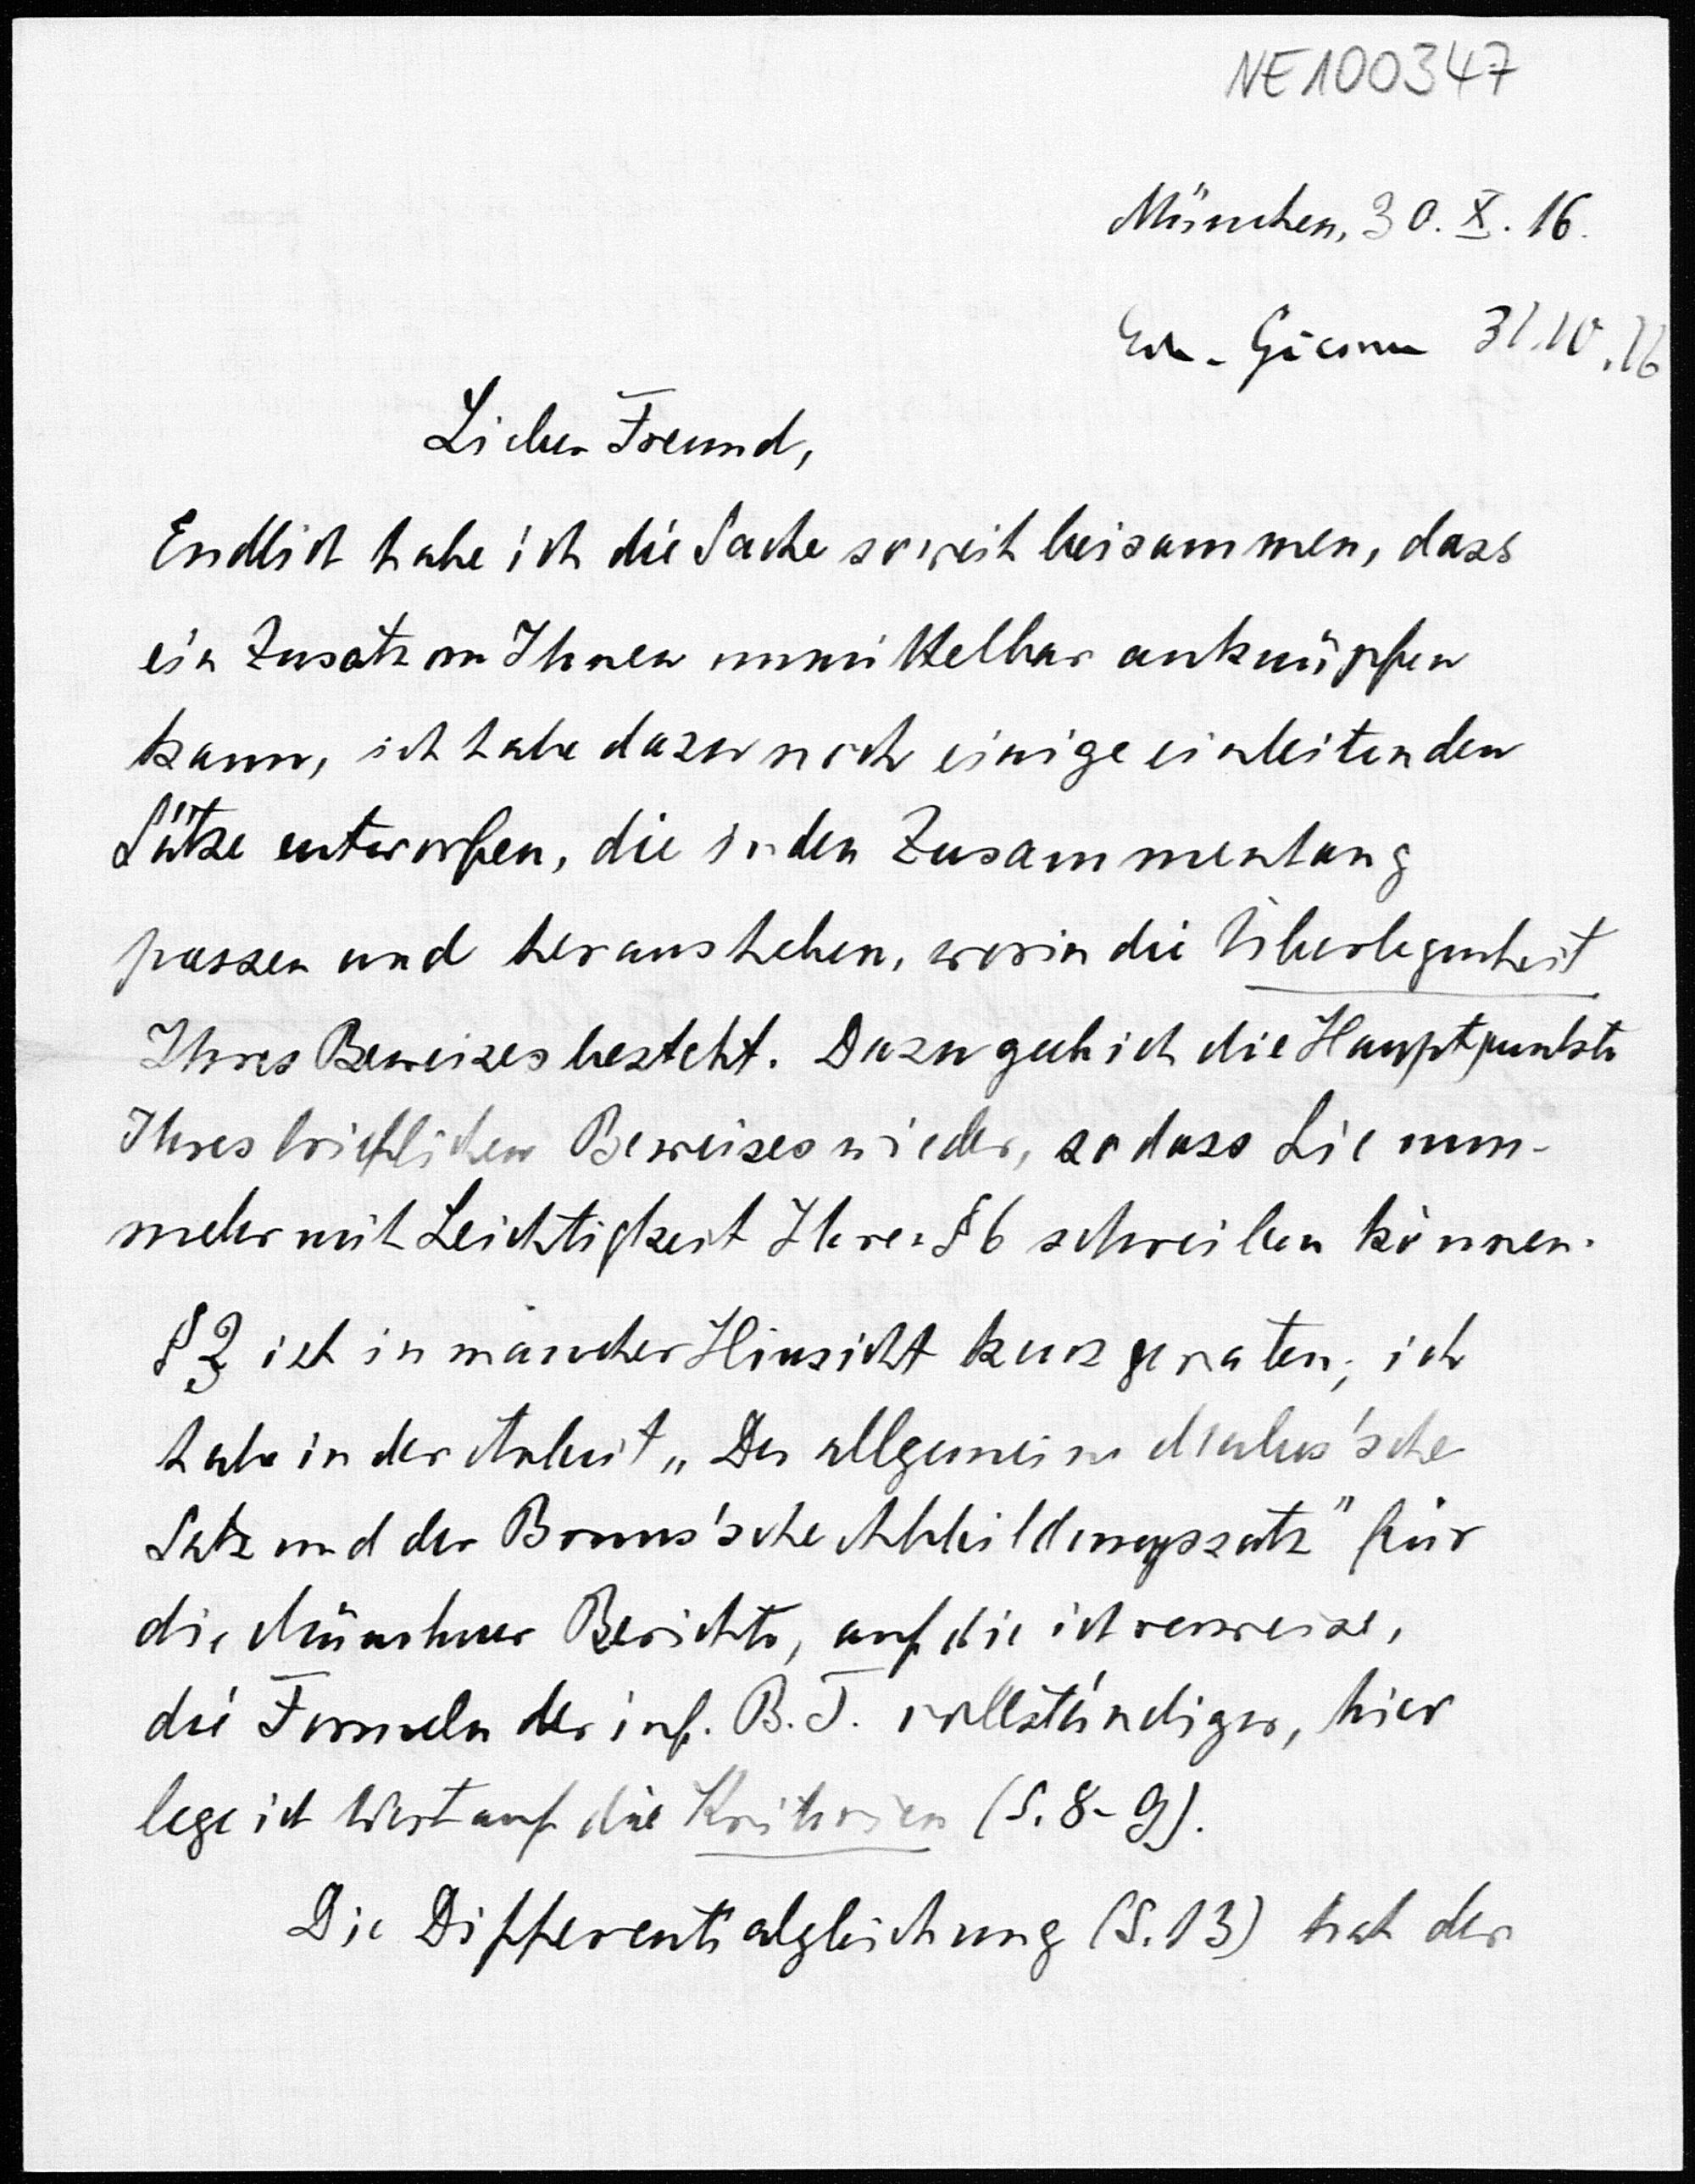 NE100347
München, 30. X. 16.
31.10.16
Lieber Freund,
Endlich habe ich die Sache soweit beisammen, dass
ein Zusatz von Ihnen unmittelbar anknüpfen
kann, ich habe dazu noch einige einleitenden
Sätze entworfen, die in den Zusammenhang
passen und herausheben, worin die Überlegenheit
Ihres Beweises besteht. Dazu geb ich die Hauptpunkte
Ihres brieflichen Beweises wieder, sodass Sie nun-
mehr mit Leichtigkeit Ihren § 6 schreiben können.
§ 3 ist in mancher Hinsicht kurz geraten; ich
habe in der Arbeit „Der allgemeine Malus'sche
Satz und der Bruns'sche Abbildungssatz" für
die Münchner Berichte, auf die ich verweise,
die Formeln der inf. B.T. vollständiger, hier
lege ich Wert auf die Kriterien (S. 8-9).
Die Differentialgleichung (S. 13) hat der